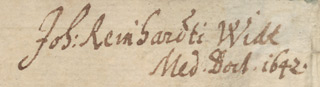 Joh: Reinhardti Widt
Med. Doct. 1642.